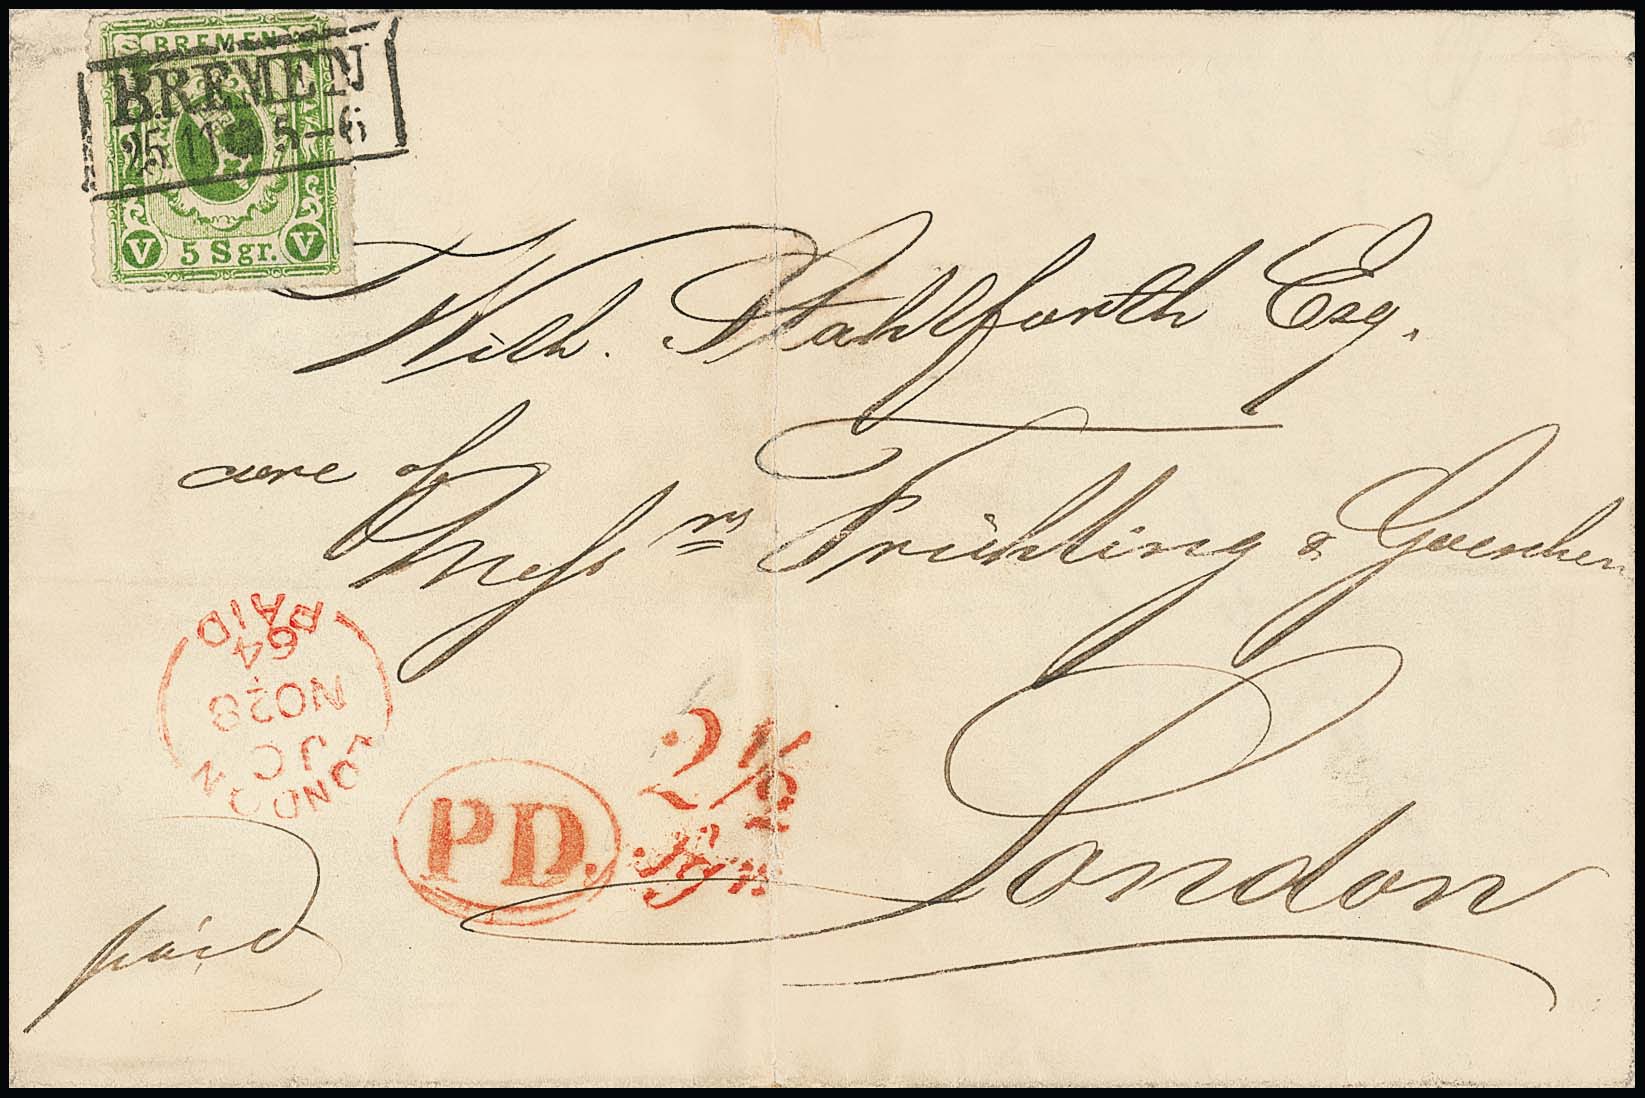 BREMEN
BREMEN
25 11 5-6
V 5 Sgr. V
Wilh. Stahlforth Esq.
care of
Mess rs Frühling & Goschen
London
LONDON
JC
NO 28
64
PAID
PD.
2½
Sgr
paid